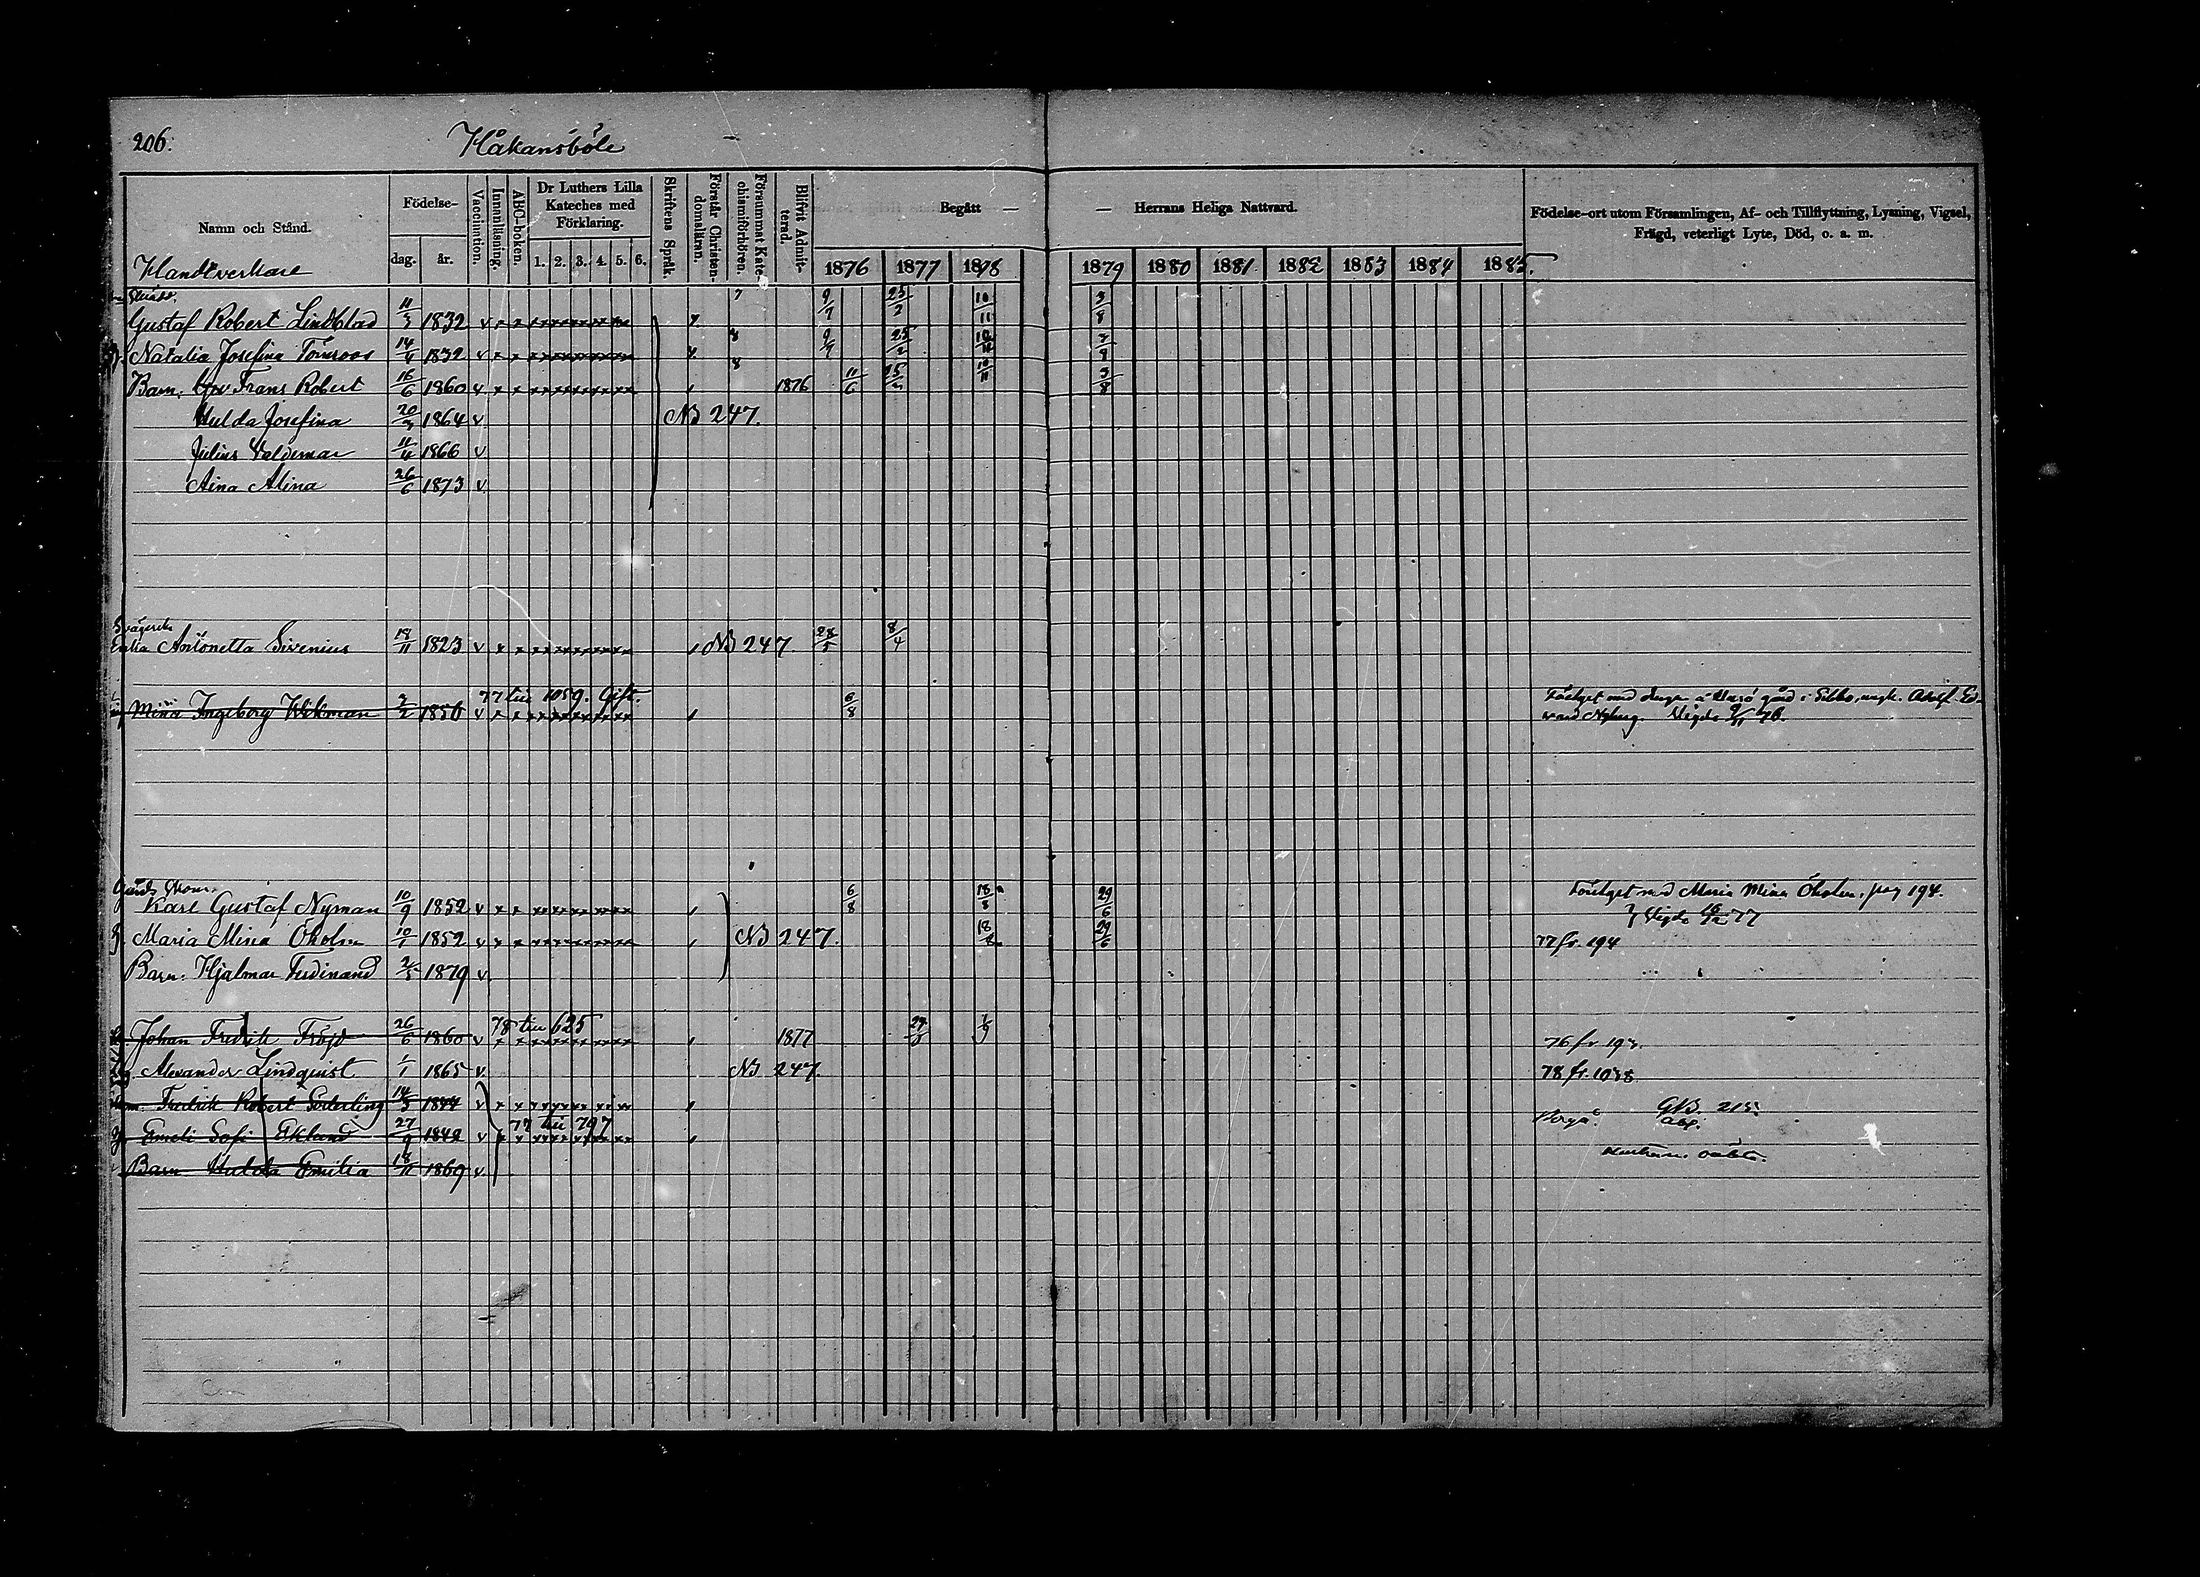 206.
Håkansböle
Namn och Stånd.
Födelse-
dag.
år.
Vaccination.
Innanläsning.
ABC-boken.
Dr Luthers Lilla Kateches med Förklaring.
1. 2. 3. 4. 5. 6.
Skriftens Språk.
Förstår Christendomsläran.
Försummat Katechismiförhören.
Blifvit Admitterad.
Begått — — Herrans Heliga Nattvard.
1876 1877 1878 1879 1880 1881 1882 1883 1884 1885.
Födelse-ort utom Församlingen, Af- och Tillflyttning, Lysning, Vigsel,
Frägd, veterligt Lyte, Död, o. a. m.
Handtverkare
7
Gustaf Robert Lindblad 11/3 1832 v 9/7 25/2 10/11 3/8
8
Natalia Josefina Törnroos 14/4 1832 v 9/7 25/2 10/11 3/8
8
Barn. Frans Robert 16/6 1860 v 1876 11/6 25/2 10/11 3/8
Hulda Josefina 20/3 1864 v NB 247.
Julius Valdemar 11/4 1866 v
Aina Alina 26/6 1873 v
Antonetta Sivenius 18/11 1823 v NB 247 28/5 8/4
77 till 1059. Gift.
Mina Ingeborg Wikman 2/2 1856 v 6/8
Adolf Ed-
vard Nyberg. Vigde 9/11 76.
Karl Gustaf Nyman 10/9 1852 v 6/8 18/8 29/6 med Maria Mina Öholm, pag 194.
Vigde 16/12 77
Maria Mina Öholm 10/1 1852 v NB 247. 18/8 29/6 77 fr. 194
Barn. Hjalmar Ferdinand 2/5 1879 v
78 till 625
Johan Fredrik Fröjd 26/6 1860 v 1877 76 fr
Alexander Lindquist 1/1 1865 v NB 247. 78 fr. 1038
Fredrik Robert Söderling 14/3 1844 v
GB. 215.
77 till 797
Emeli Sofi Eklund 27/9 1842 v
Barn Hulda Emilia 18/11 1869 v